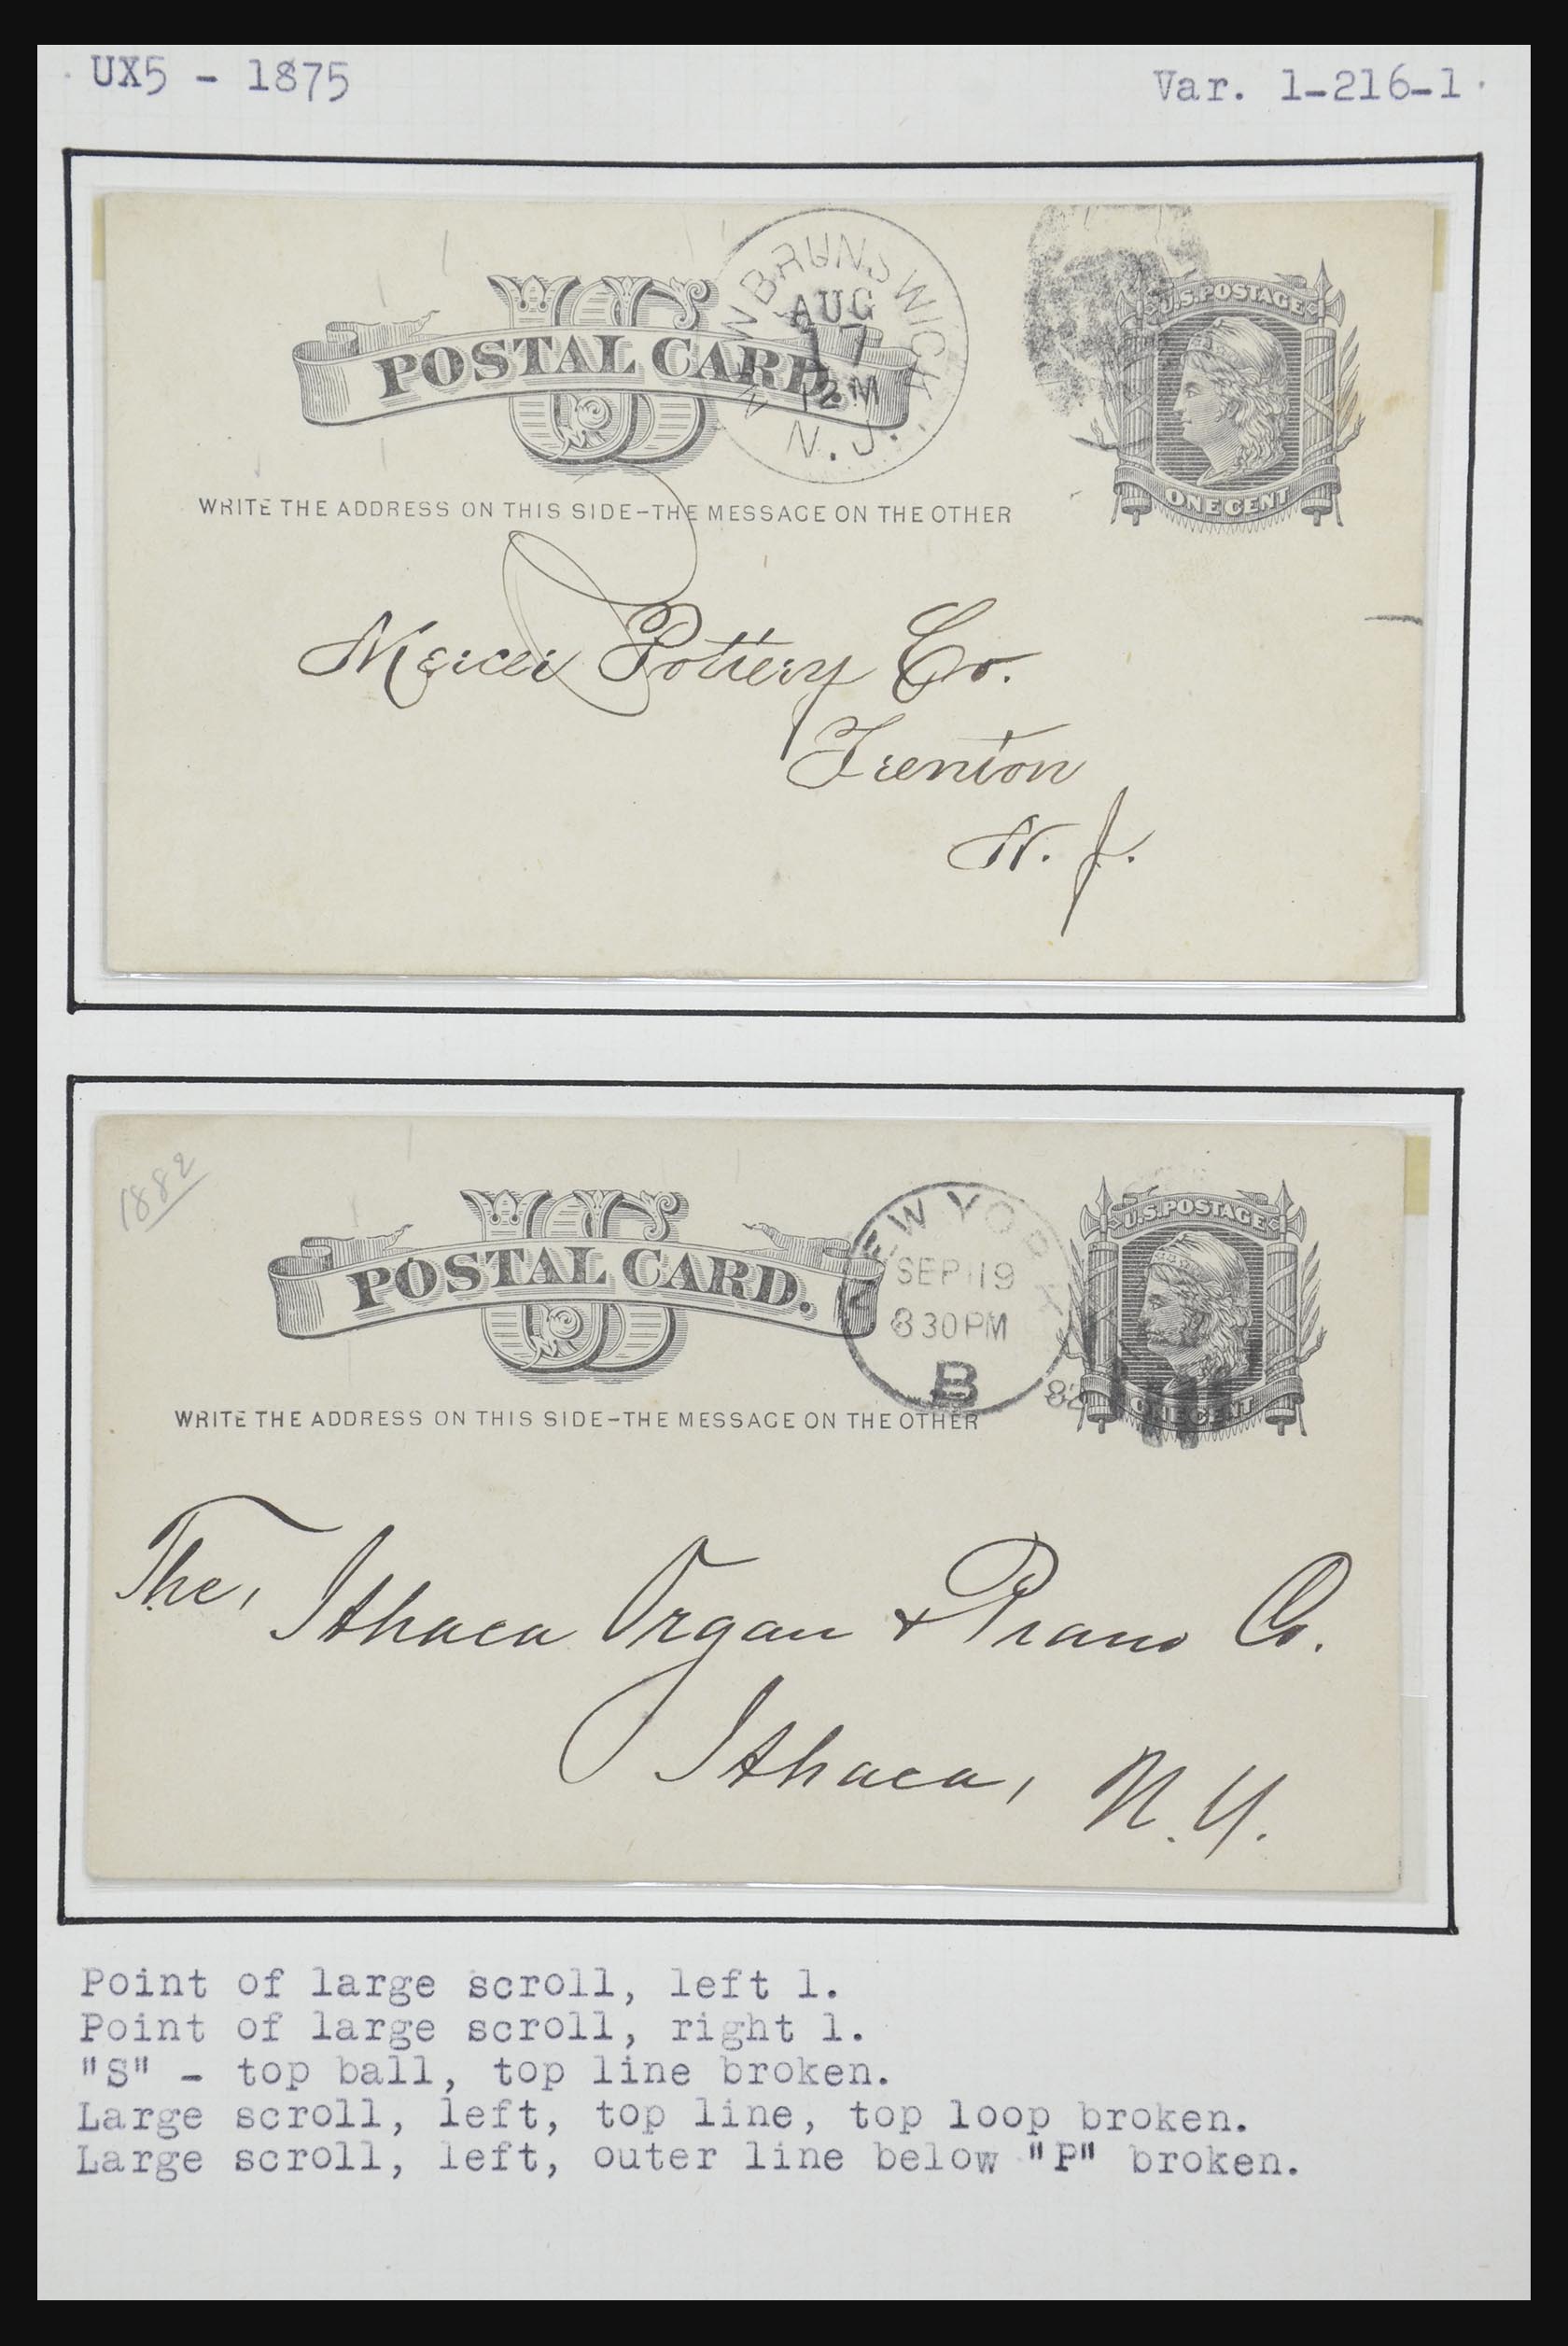 UX5 - 1875
Var. 1-216-1
US
POSTAL CARD.
NEW BRUNSWICK
AUG
17
12 M
N.J.
U.S. POSTAGE
ONE CENT
WRITE THE ADDRESS ON THIS SIDE-THE MESSAGE ON THE OTHER
Mercer Pottery Co.
Trenton
N. J.
1882
US
POSTAL CARD.
NEW YORK
SEP 19
8 30 PM
B
82
U.S. POSTAGE
ONE CENT
WRITE THE ADDRESS ON THIS SIDE-THE MESSAGE ON THE OTHER
The, Ithaca Organ & Piano Co.
Ithaca, N.Y.
Point of large scroll, left 1.
Point of large scroll, right 1.
"S" - top ball, top line broken.
Large scroll, left, top line, top loop broken.
Large scroll, left, outer line below "P" broken.